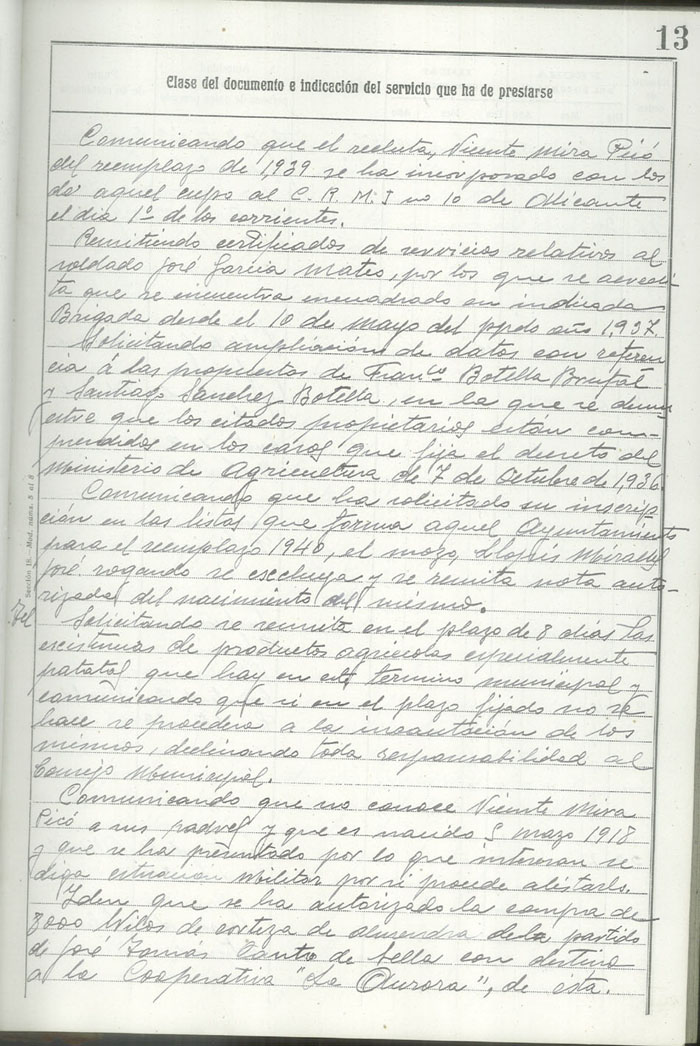 13
Clase del documento e indicación del servicio que ha de prestarse
Comunicando que el recluta, Vicente Mira Picó
del reemplazo de 1,939 se ha incorporado con los
de aquel cupo al C. R. M. I no 10 de Alicante
el dia 1º de los corrientes.
Remitiendo certificados de servicios relativos al
soldado José Garcia Mateo, por los que se acredi
ta que se encuentra encuadrado en indicada
Brigada desde el 10 de Mayo del ppdo año 1,937.
Solicitando ampliación de datos con referen
cia á las propuestas de Franco Botella Brufal
y Santiago Sanchez Botella, en la que se demu
estre que los citados propietarios están com-
prendidos en los casos que fija el decreto del
Ministerio de Agricultura de 7 de Octubre de 1,936.
Comunicando que ha solicitado su inscrip
ción en las listas que forma aquel Ayuntamiento
para el reemplazo 1940, el mozo, Llopis Miralles
José rogando se excluya y se remita nota auto-
rizada del nacimiento del mismo.
Tel Solicitando se remita en el plazo de 8 dias las
existencias de productos agricolas especialmente
patatas que hay en este término municipal y
comunicando que si en el plazo fijado no se
hace se procedera a la incautación de los
mismos, declinando toda responsabilidad al
Consejo Municipal.
Comunicando que no conoce Vicente Mira
Picó a sus padres y que es nacido 5 mazo 1918
y que se ha presentado por lo que interesan se
diga situación Militar por si procede alistarlo.
Iden que se ha autorizado la compra de
3000 Kilos de corteza de almendra de la partida
de José Tomás Cantó de Sella con destino
a la Cooperativa "La Aurora", de ésta.
Sección 1ª.-Mod. nums. 5 al 8